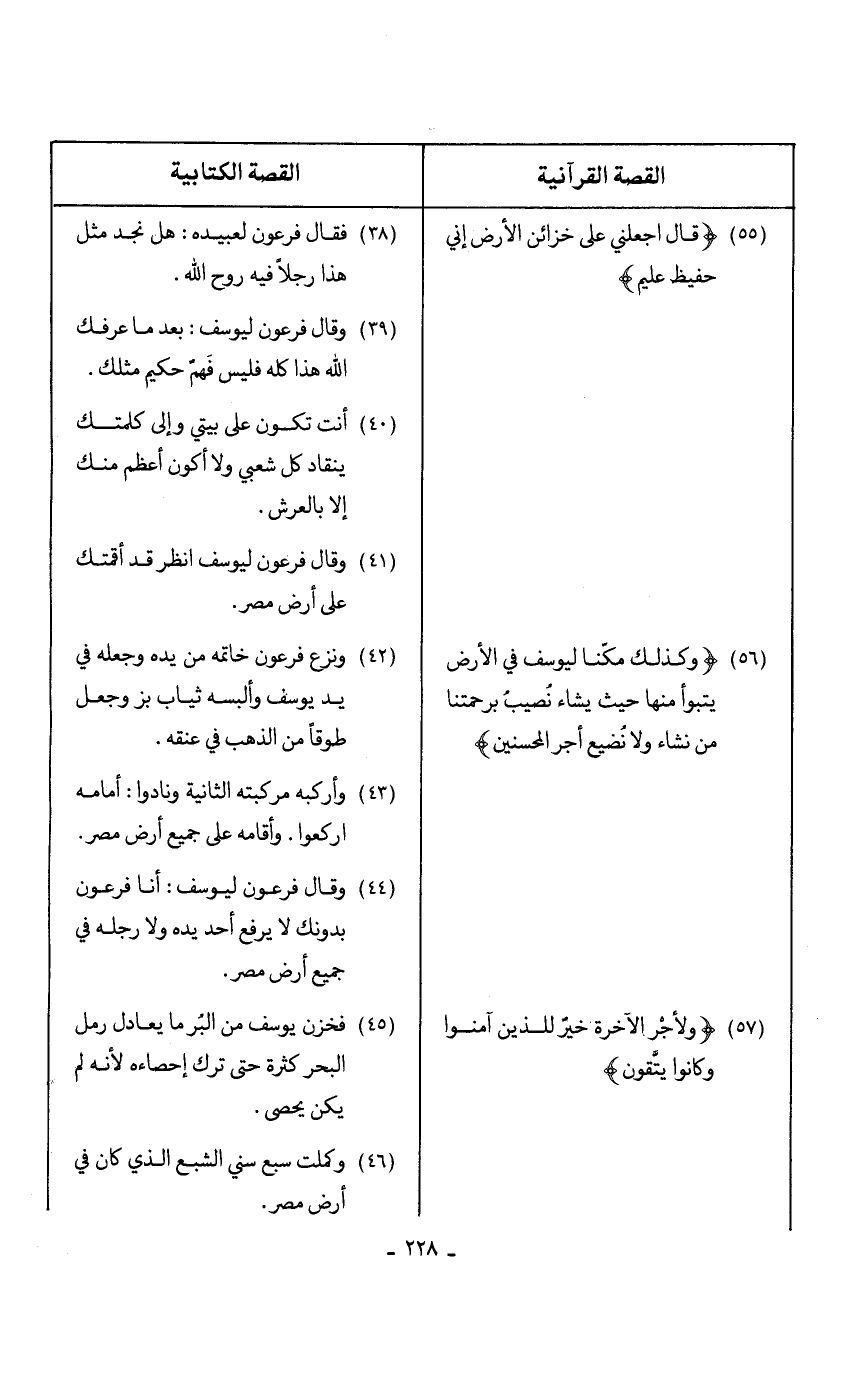 القصة القرآنية
(٥٥) ﴿قال اجعلني على خزائن الأرض إني
حفيظ عليم﴾
(٥٦) ﴿وكذلك مكّنا ليوسف في الأرض
يتبوأ منها حيث يشاء نُصيبُ برحمتنا
من نشاء ولا نُضيع أجر المحسنين﴾
(٥٧) ﴿ولأجْر الآخرة خيرٌ للذين آمنوا
وكانوا يتَّقون﴾
القصة الكتابية
(٣٨) فقال فرعون لعبيده : هل نجد مثل
هذا رجلاً فيه روح الله .
(٣٩) وقال فرعون ليوسف : بعد ما عرفك
الله هذا كله فليس فَهمٌ حكيم مثلك .
(٤٠) أنت تكون على بيتي وإلى كلمتك
ينقاد كل شعبي ولا أكون أعظم منك
إلا بالعرش .
(٤١) وقال فرعون ليوسف انظر قد أقمتك
على أرض مصر.
(٤٢) ونزع فرعون خاتمه من يده وجعله في
يد يوسف وألبسه ثياب بز وجعل
طوقاً من الذهب في عنقه .
(٤٣) وأركبه مركبته الثانية ونادوا : أمامه
اركعوا . وأقامه على جميع أرض مصر.
(٤٤) وقال فرعون ليوسف : أنا فرعون
بدونك لا يرفع أحد يده ولا رجله في
جميع أرض مصر.
(٤٥) فخزن يوسف من البُر ما يعادل رمل
البحر كثرة حتى ترك إحصاءه لأنه لم
يكن يحصى .
(٤٦) وكملت سبع سني الشبع الذي كان في
أرض مصر.
- ٢٢٨ -